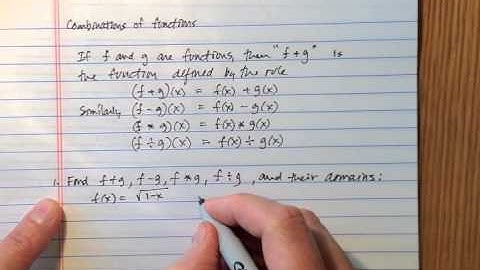 Combinations of functions
If f and g are functions, then "f+g" is
the function defined by the rule
(f+g)(x) = f(x) + g(x)
Similarly (f-g)(x) = f(x) - g(x)
(f*g)(x) = f(x)*g(x)
(f÷g)(x) = f(x)÷g(x)
1. Find f+g, f-g, f*g, f÷g, and their domains:
f(x) = √1-x